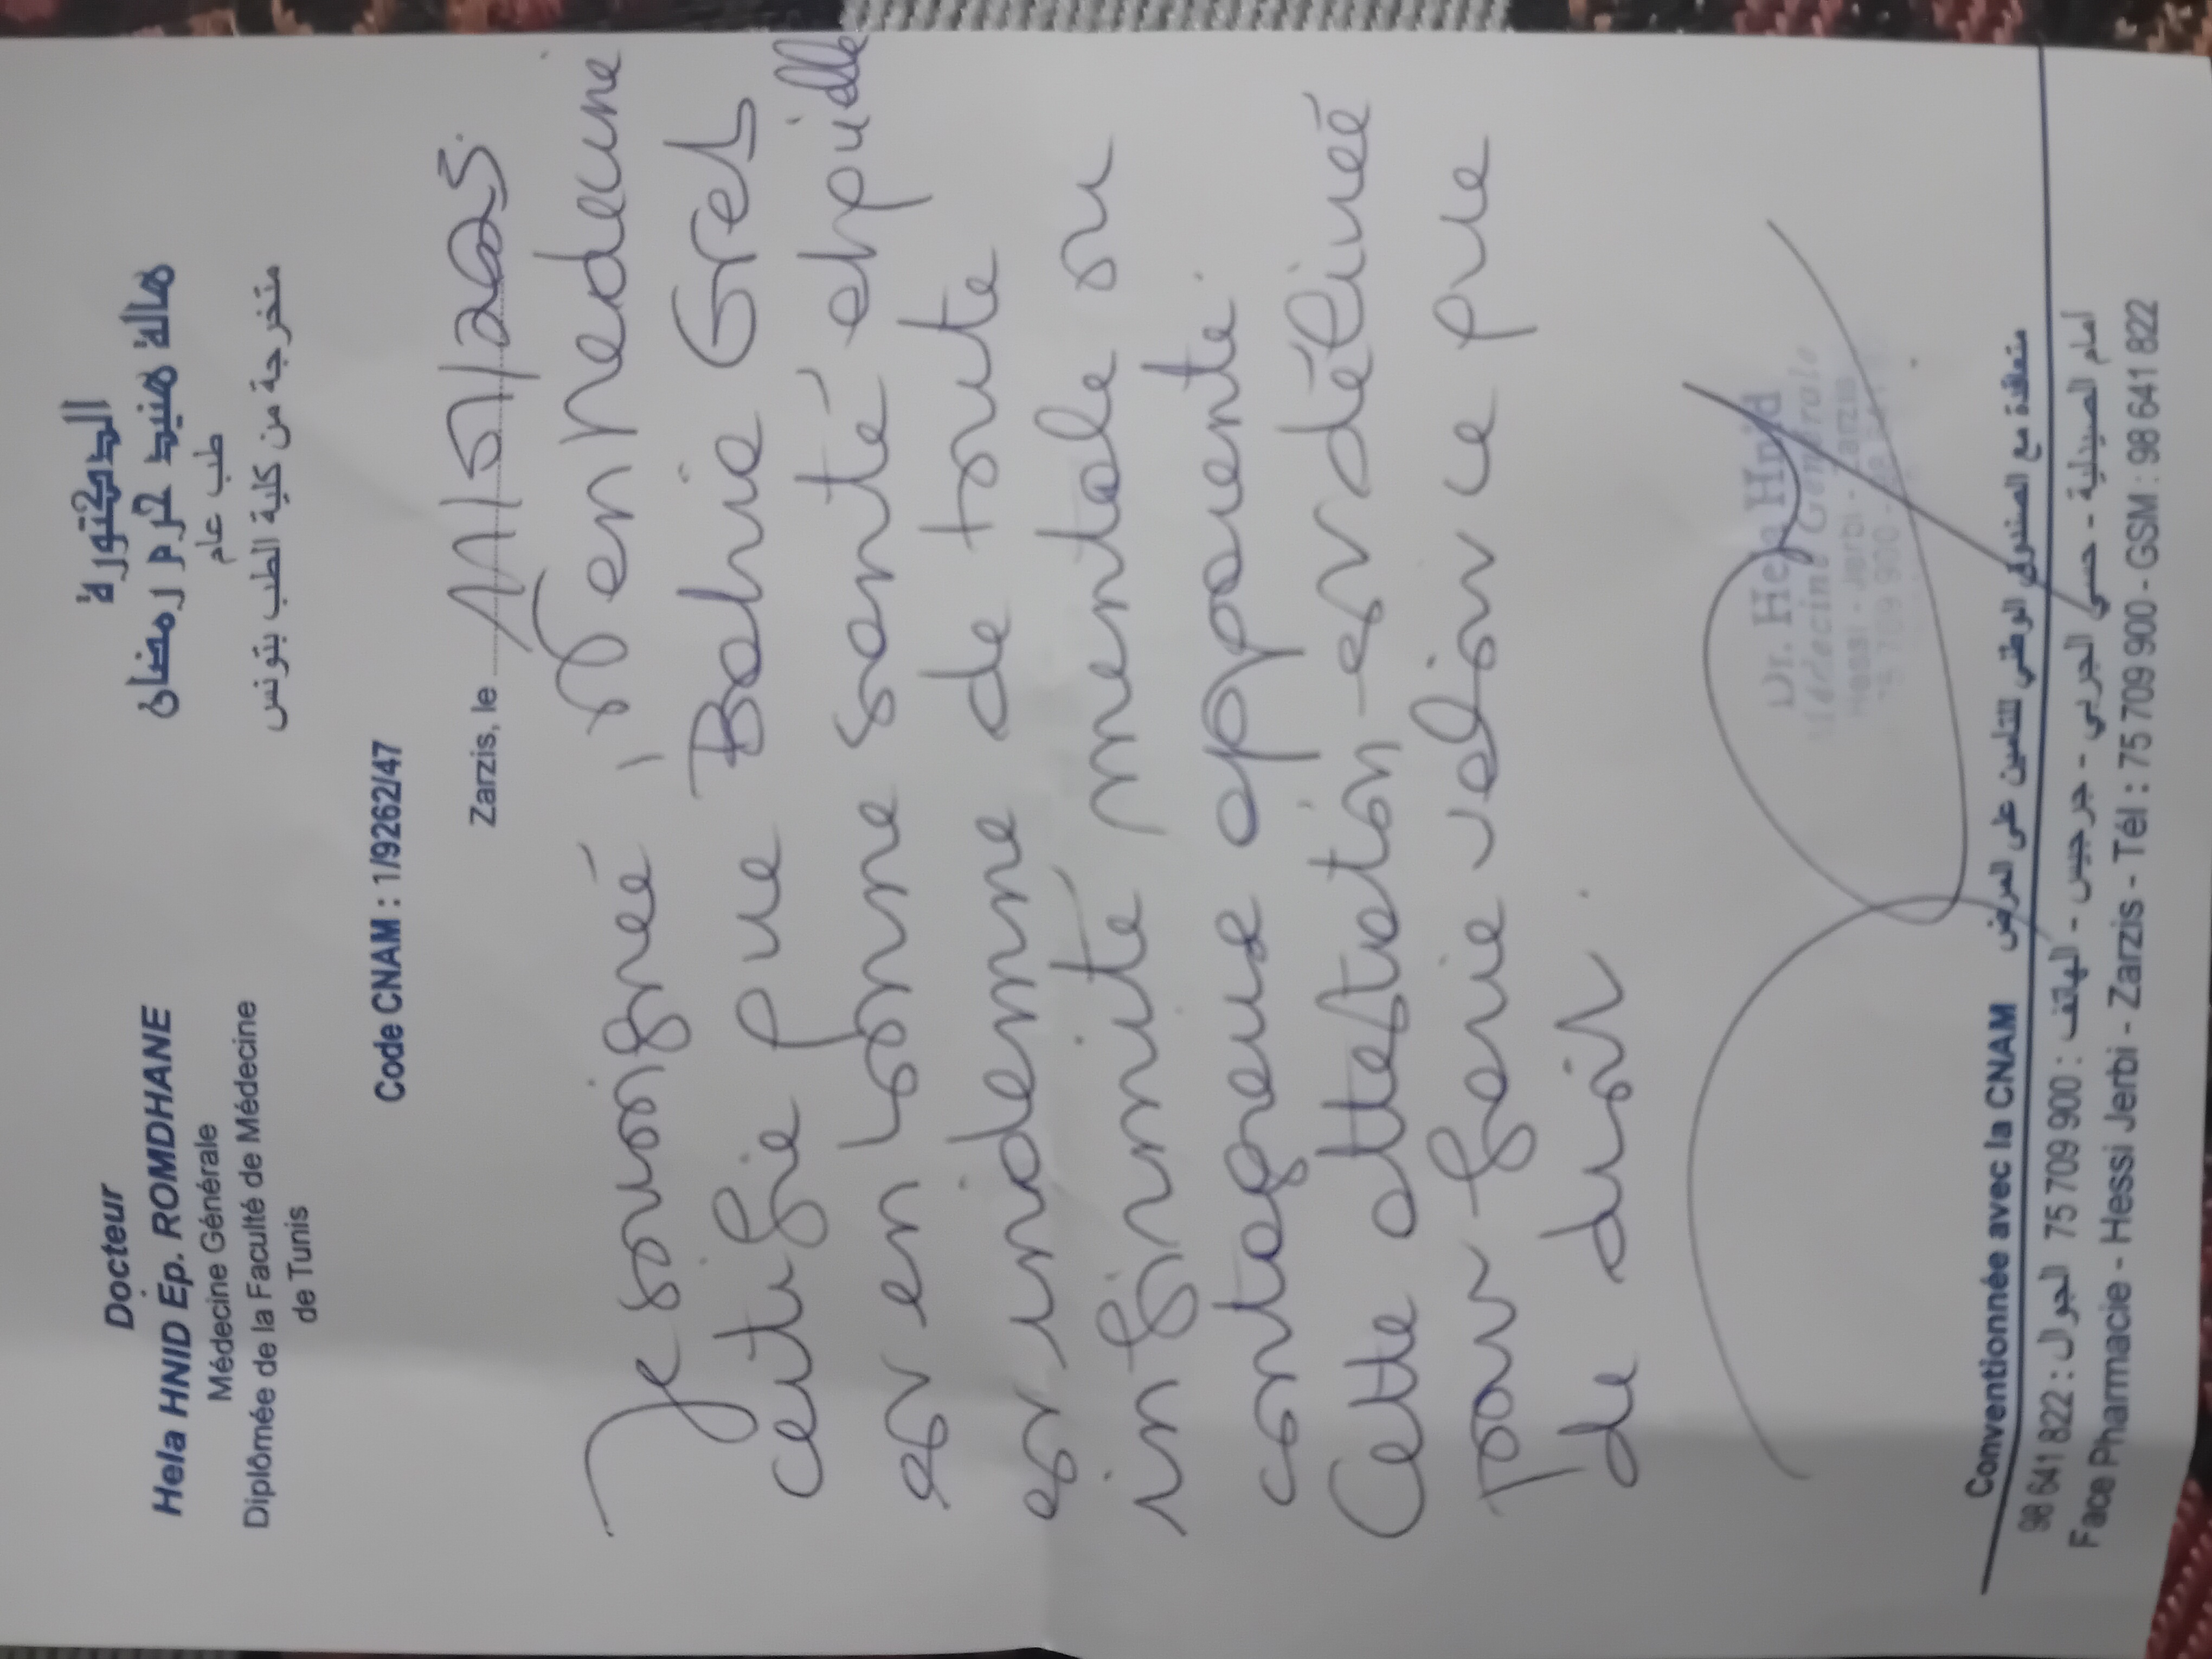 Docteur
Hela HNID Ep. ROMDHANE
Médecine Générale
Diplômée de la Faculté de Médecine
de Tunis
الدكتورة
هالة هنيد حرم رمضان
طب عام
متخرجة من كلية الطب بتونس
Code CNAM : 1/9262/47
Zarzis, le 11/07/2025
Je soussigné, Dr en Médecine
certifie que Bahria
est en bonne santé et qu'elle
est indemne de toute
infirmité mentale ou
contagieuse apparente.
Cette attestation est délivrée
pour servir valoir ce que
de droit.
Dr. Hela Hnid
Médecine Générale
Hassi - Jerbi - Zarzis
75 709 900
Conventionnée avec la CNAM متعاقدة مع الصندوق الوطني للتأمين على المرض
أمام الصيدلية - حسي الجربي - جرجيس - الهاتف : 75 709 900 الجوال : 98 641 822
Face Pharmacie - Hessi Jerbi - Zarzis - Tél : 75 709 900 - GSM : 98 641 822